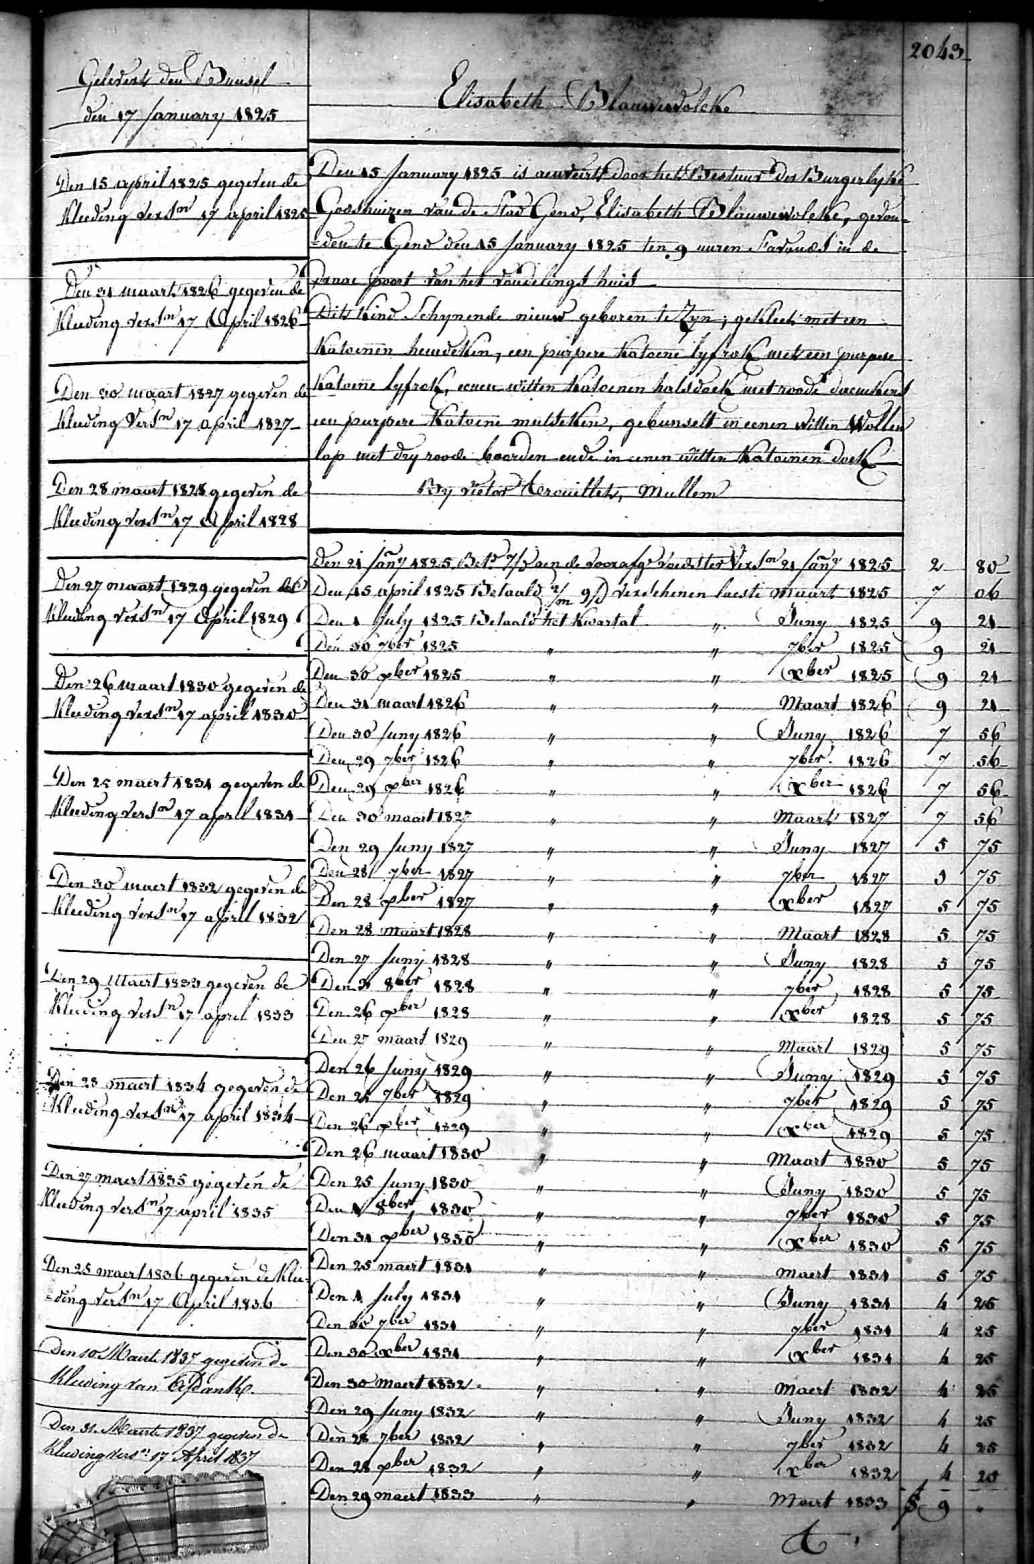 2043
Gelevert den Bunsel
den 17 January 1825
Elisabeth Blauwewolcke
Den 15 april 1825 gegeven de
Kleeding versn 17 april 1825
Den 31 maart 1826 gegeven de
Kleeding versn 17 April 1826
Den 30 maart 1827 gegeven de
Kleeding versn 17 april 1827
Den 28 maart 1828 gegeven de
Kleeding versn 17 April 1828
Den 27 maart 1829 gegeven de
Kleeding versn 17 April 1829
Den 26 maart 1830 gegeven de
Kleeding versn 17 april 1830
Den 25 maert 1831 gegeven de
Kleeding versn 17 april 1831
Den 30 maert 1832 gegeven de
Kleeding versn 17 april 1832
Den 29 Maert 1833 gegeven de
Kleeding versn 17 april 1833
Den 28 maert 1834 gegeven de
Kleeding versn 17 april 1834
Den 27 maert 1835 gegeven de
Kleeding versn 17 april 1835
Den 25 maert 1836 gegeven de Klee-
ding versn 17 April 1836
Den 10 Maert 1837 gegeven de
Kleeding van
Den 31 Maert 1837 gegeven de
Kleeding versn 17 April 1837
Den 15 January 1825 is aenveirt door het Bestuur der Burgerlyke
Godshuizen van de Stad Gend, Elisabeth Blauwewolcke, gevon-
den te Gend den 15 January 1825 ten 9 uuren s'avonds in de
poort van het vondelings huis
Dits Kind schynende nieuw geboren te Zyn; gekleed met een
Katoenen hemdeken, een purpere Katoene lyfrok met een purpere
Katoene lyfrok, eenen witten Katoenen halsdoek met roode
een purpere Katoene mutseken, gebunselt in eenen witten Wollen
lap met dry roode boorden ende in eenen witten Katoenen doek
By victor Mullem
Den 21 Jany 1825 Betd aen de voedster versn 21 Jany 1825 2 80
Den 15 april 1825 Betaald verschenen laeste maart 1825 7 06
Den 1 July 1825 Betaald het Kwartal " Juny 1825 9 21
Den 30 7ber 1825 " " 7ber 1825 9 21
Den 30 xber 1825 " " xber 1825 9 21
Den 31 maart 1826 " " Maart 1826 9 21
Den 30 Juny 1826 " " Juny 1826 7 56
Den 29 7ber 1826 " " 7ber 1826 7 56
Den 29 xber 1826 " " xber 1826 7 56
Den 30 maart 1827 " " Maart 1827 7 56
Den 29 Juny 1827 " " Juny 1827 5 75
Den 28 7ber 1827 " " 7ber 1827 5 75
Den 28 xber 1827 " " xber 1827 5 75
Den 28 maart 1828 " " Maart 1828 5 75
Den 27 Juny 1828 " " Juny 1828 5 75
Den 3 8ber 1828 " " 7ber 1828 5 75
Den 26 xber 1828 " " xber 1828 5 75
Den 27 maart 1829 " " Maart 1829 5 75
Den 26 Juny 1829 " " Juny 1829 5 75
Den 7ber 1829 " " 7ber 1829 5 75
Den 26 xber 1829 " " xber 1829 5 75
Den 26 maart 1830 " " Maart 1830 5 75
Den 25 Juny 1830 " " Juny 1830 5 75
Den 1 8ber 1830 " " 7ber 1830 5 75
Den 31 xber 1830 " " xber 1830 5 75
Den 25 maert 1831 " " maert 1831 5 75
Den 1 July 1831 " " Juny 1831 4 25
Den 30 7ber 1831 " " 7ber 1831 4 25
Den 30 xber 1831 " " xber 1831 4 25
Den 30 maert 1832 " " maert 1832 4 25
Den 29 Juny 1832 " " Juny 1832 4 25
Den 28 7ber 1832 " " 7ber 1832 4 25
Den 28 xber 1832 " " xber 1832 4 25
Den 29 maert 1833 " " Maert 1833 9 "